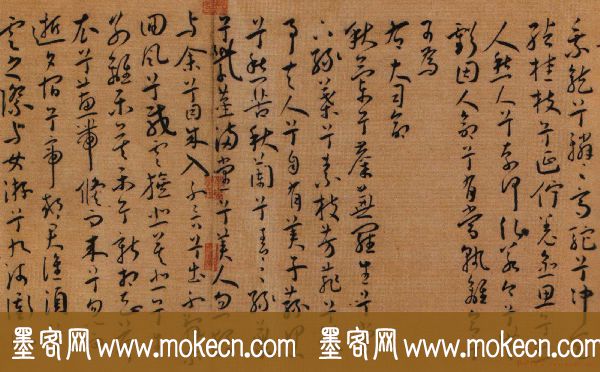 乘龍兮轔々高駝兮冲
結桂枝兮延佇羌愈思兮
人愁人兮奈何願若今兮
虧固人命兮有當孰離合
可為
右大司命
秋蘭兮蘪蕪羅生兮
下綠葉兮素枝芳菲兮
予夫人兮自有美子蓀何
兮愁苦秋蘭兮青々綠葉
兮紫莖滿堂兮美人忽獨
与余兮目成入不言兮出不辭
回風兮載雲旗悲莫悲兮
別離樂莫樂兮新相知
衣兮蕙帶儵而來兮忽
逝夕宿兮帝郊君誰須
雲之際与女游兮九河衝
墨客网 www.mokecn.com 墨客网 www.mokecn.com